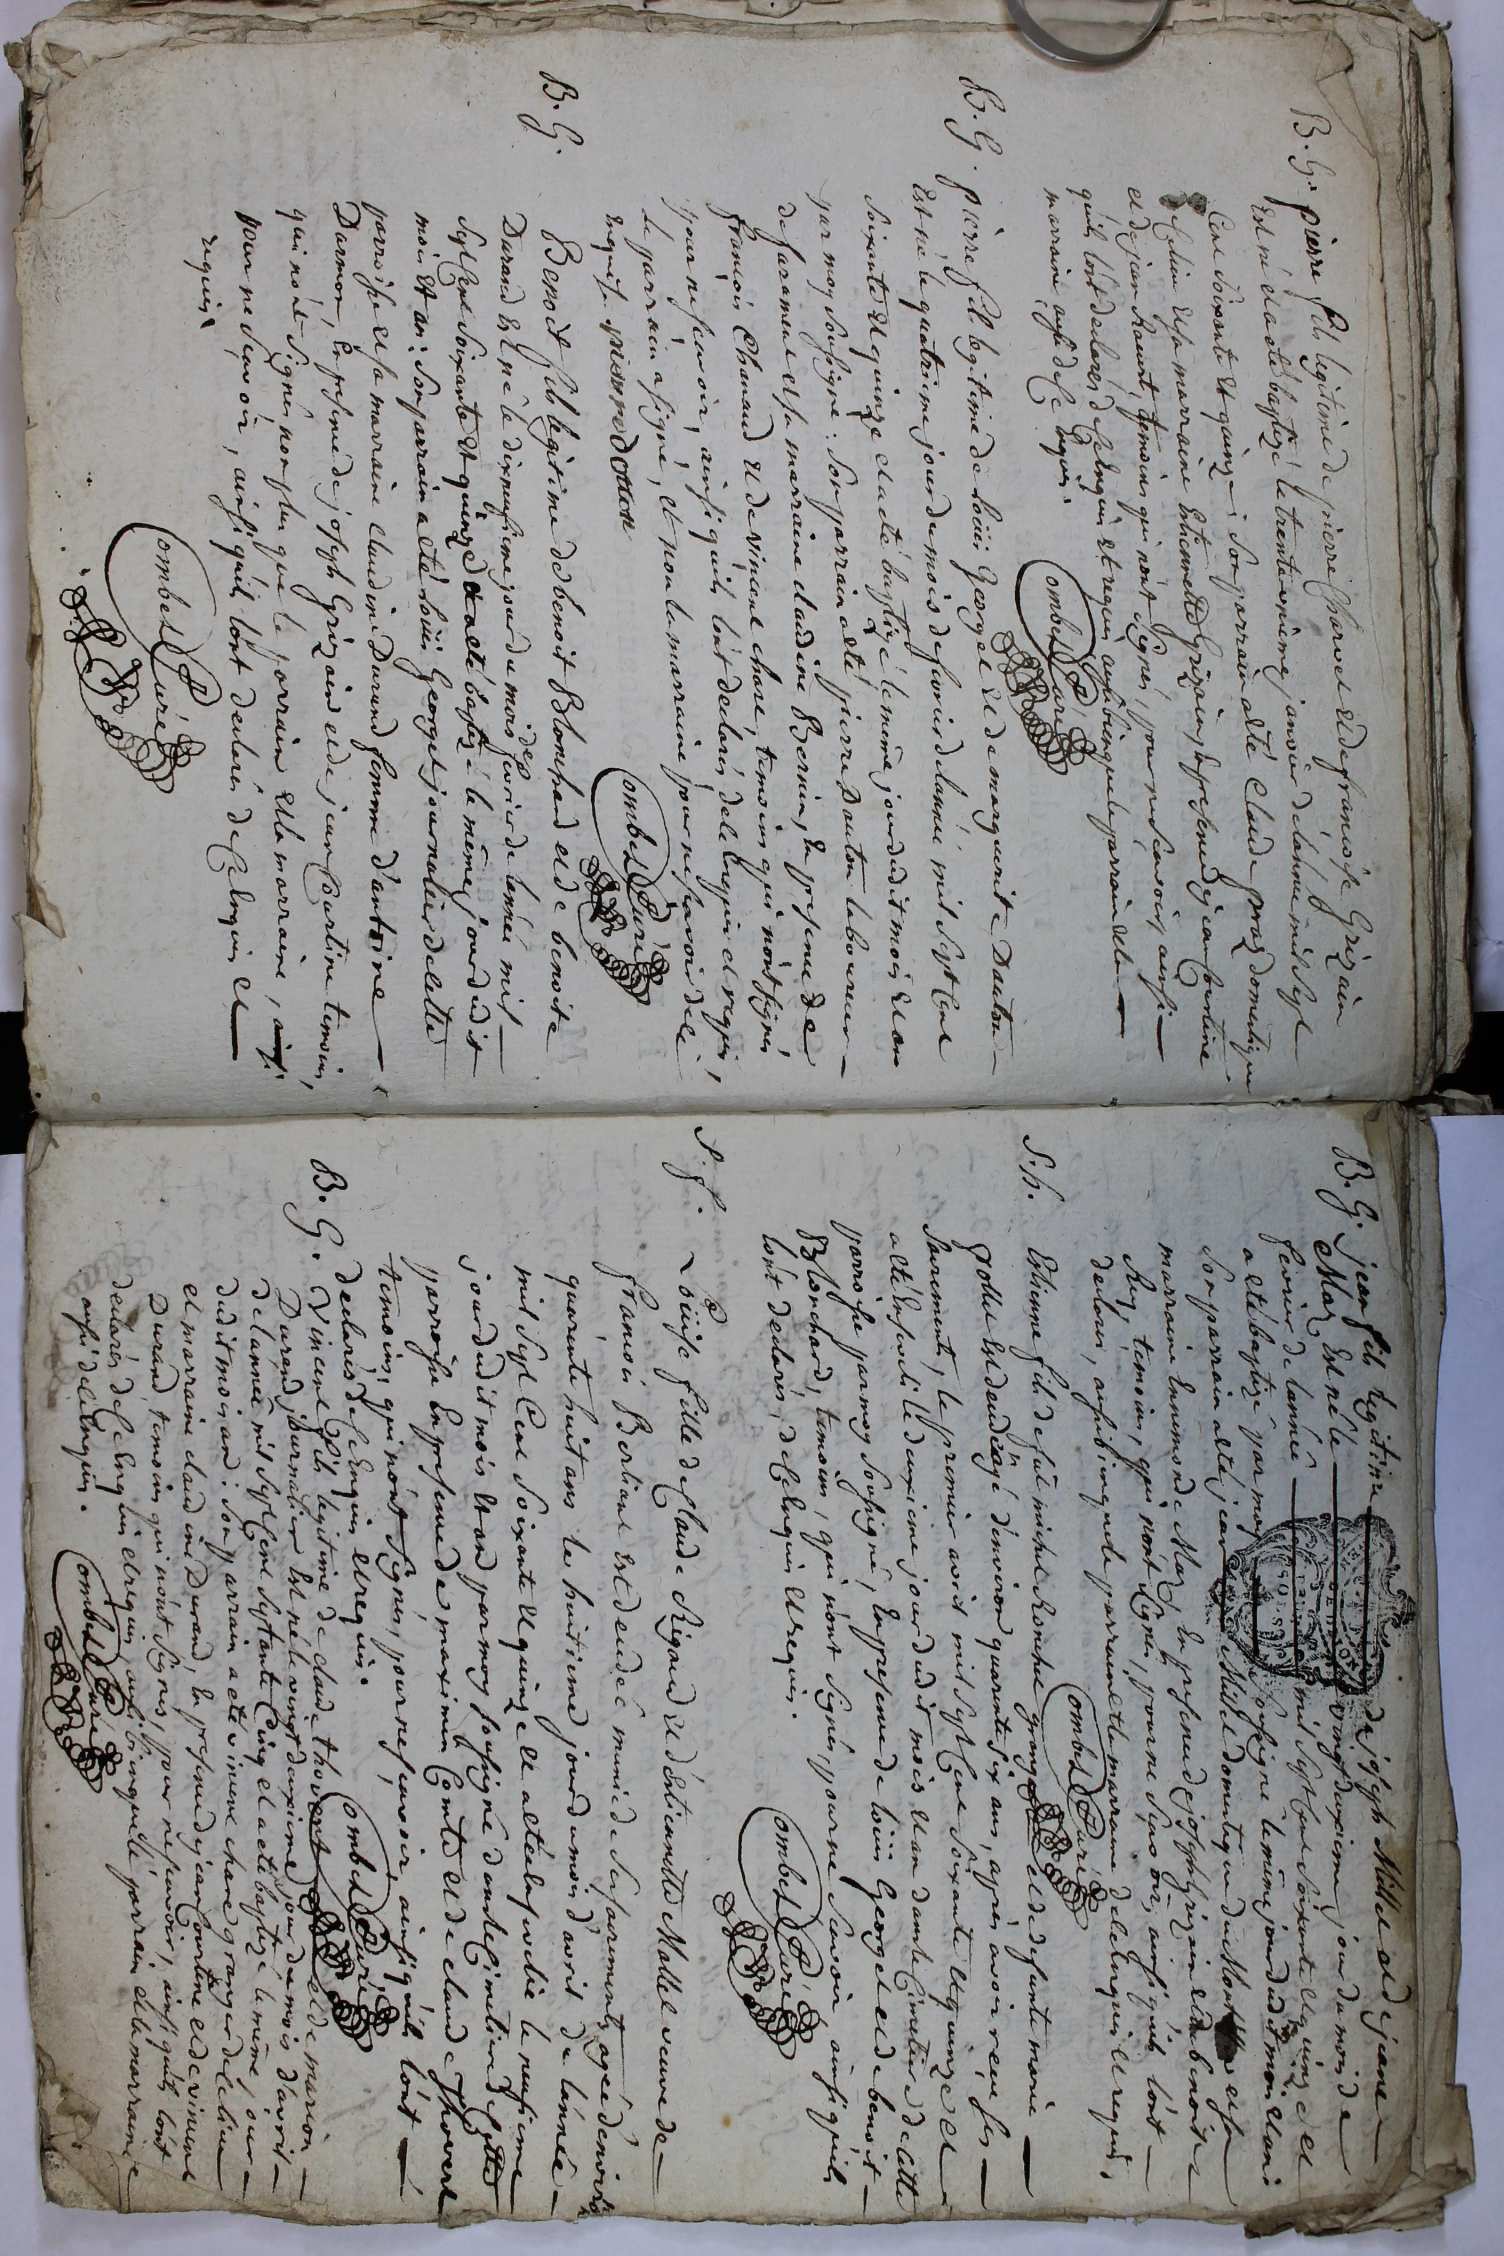 B. G. pierre fils legitime de pierre Charvet et de francoise Grizain
est né et a eté baptizé le trente unieme janvier de lannée mil sept
Cent soixante et quinze : son parrain a eté Claude domestique
et sa marraine Estiennette Grizain, En presence de jean Courtine
et de jean temoins qui n'ont signés, pour ne scavoir, ainsi
quils l'ont declarés de ce Enquis et requis, aussi bien que le parrain et la
marraine aussi de ce Enquis.
Combet Curé
B. G. pierre fils legitime de Loüis George et de marguerite Dauton
Est né le quatrieme jour du mois de fevrier de lannée mil sept Cent
soixante et quinze et a eté baptizé le même jour dudit mois et an
par moy soussigné : son parrain a eté pierre Dauton laboureur
de et sa marraine claudine Bernin, En presence de
francois Chanaud et de vincent chare, temoins qui n'ont signés
pour ne scavoir, ainsi quils l'ont declarés de ce Enquis et requis,
le parrain a signé, et non la marraine pour ne scavoir de ce
Enquise. pierre doton
Combet Curé
B. G. Benoit fils legitime de benoit Blonchard et de benoite
Durand Est né le dixneufieme jour du mois de fevrier de lannée mil
sept Cent soixante et quinze et a eté baptizé le même jour dudit
mois et an : son parrain a eté Loüis George journalier de cette
parroisse et sa marraine claudine Durand femme d'antoine
Darmon, En presence de joseph Grizain et de jean Courtine temoins,
qui n'ont signés non plus que le parrain et la marraine, ainsi
pour ne scavoir, ainsi quils l'ont declarés de ce Enquis et
requis.
Combet Curé
B. G. jean fils legitime de joseph Millet et de jeane
Maz, Est né le vingt deuxieme jour du mois de
fevrier de lannée mil sept Cent soixante et quinze et
a eté baptizé par moy soussigné le même jour dudit mois et an :
son parrain a eté jean Millet domestique du et sa
marraine Ennemonde Maz, En presence de joseph Grizain et de benoite
Rey, temoins, qui n'ont signés, pour ne scavoir, ainsi quils l'ont
declarés, aussi bien que le parrain et la marraine de ce Enquis et requis.
Combet Curé
S. h. Estienne fils de fût michel Ronchet granger et de defunte marie
Est decedé agé d'environ quarante six ans, apprès avoir reçu ses
sacrements, le premier avril mil sept Cent soixante et quinze et
a eté Ensevelit le deuxieme jour dudit mois et an dans le Cimetiere de cette
parroisse par moy soussigné, En presence de Loüis George et de benoit
Blonchard, temoins, qui n'ont signés, pour ne scavoir, ainsi quils
l'ont declarés, de ce Enquis et requis.
Combet Curé
S. f. Loüise fille de Claude Rigaud et d'Estiennette Mallet veuve de
francois Berliant Est decedéé munie de ses sacrements, agéé d'environ
quarante huit ans le huitieme jour du mois d'avril de lannée
mil sept Cent soixante et quinze et a eté Ensevelie le neufieme
jour dudit mois et an par moy soussigné dans le Cimetiere de cette
parroisse En presence de maximin Comte et de claude Thovert
temoins, qui n'ont signés, pour ne scavoir, ainsi quils l'ont
declarés de ce Enquis et requis.
Combet Curé
B. G. Vincent fils legitime de claude thovert et de marion
Durand, journalier Est né le vingt deuxieme jour du mois d'avril
de lannée mil sept Cent septante Cinq et a eté baptizé le même jour
dudit mois et an : son parrain a eté vincent chare granger de ce lieu
et marraine claudine Durand, En presence de jean Courtine et de vincent
Durand, temoins qui n'ont signés, pour ne scavoir, ainsi quils l'ont
declarés de ce Enquis et requis, aussi bien que le parrain et la marraine
aussi de ce Enquis.
Combet Curé